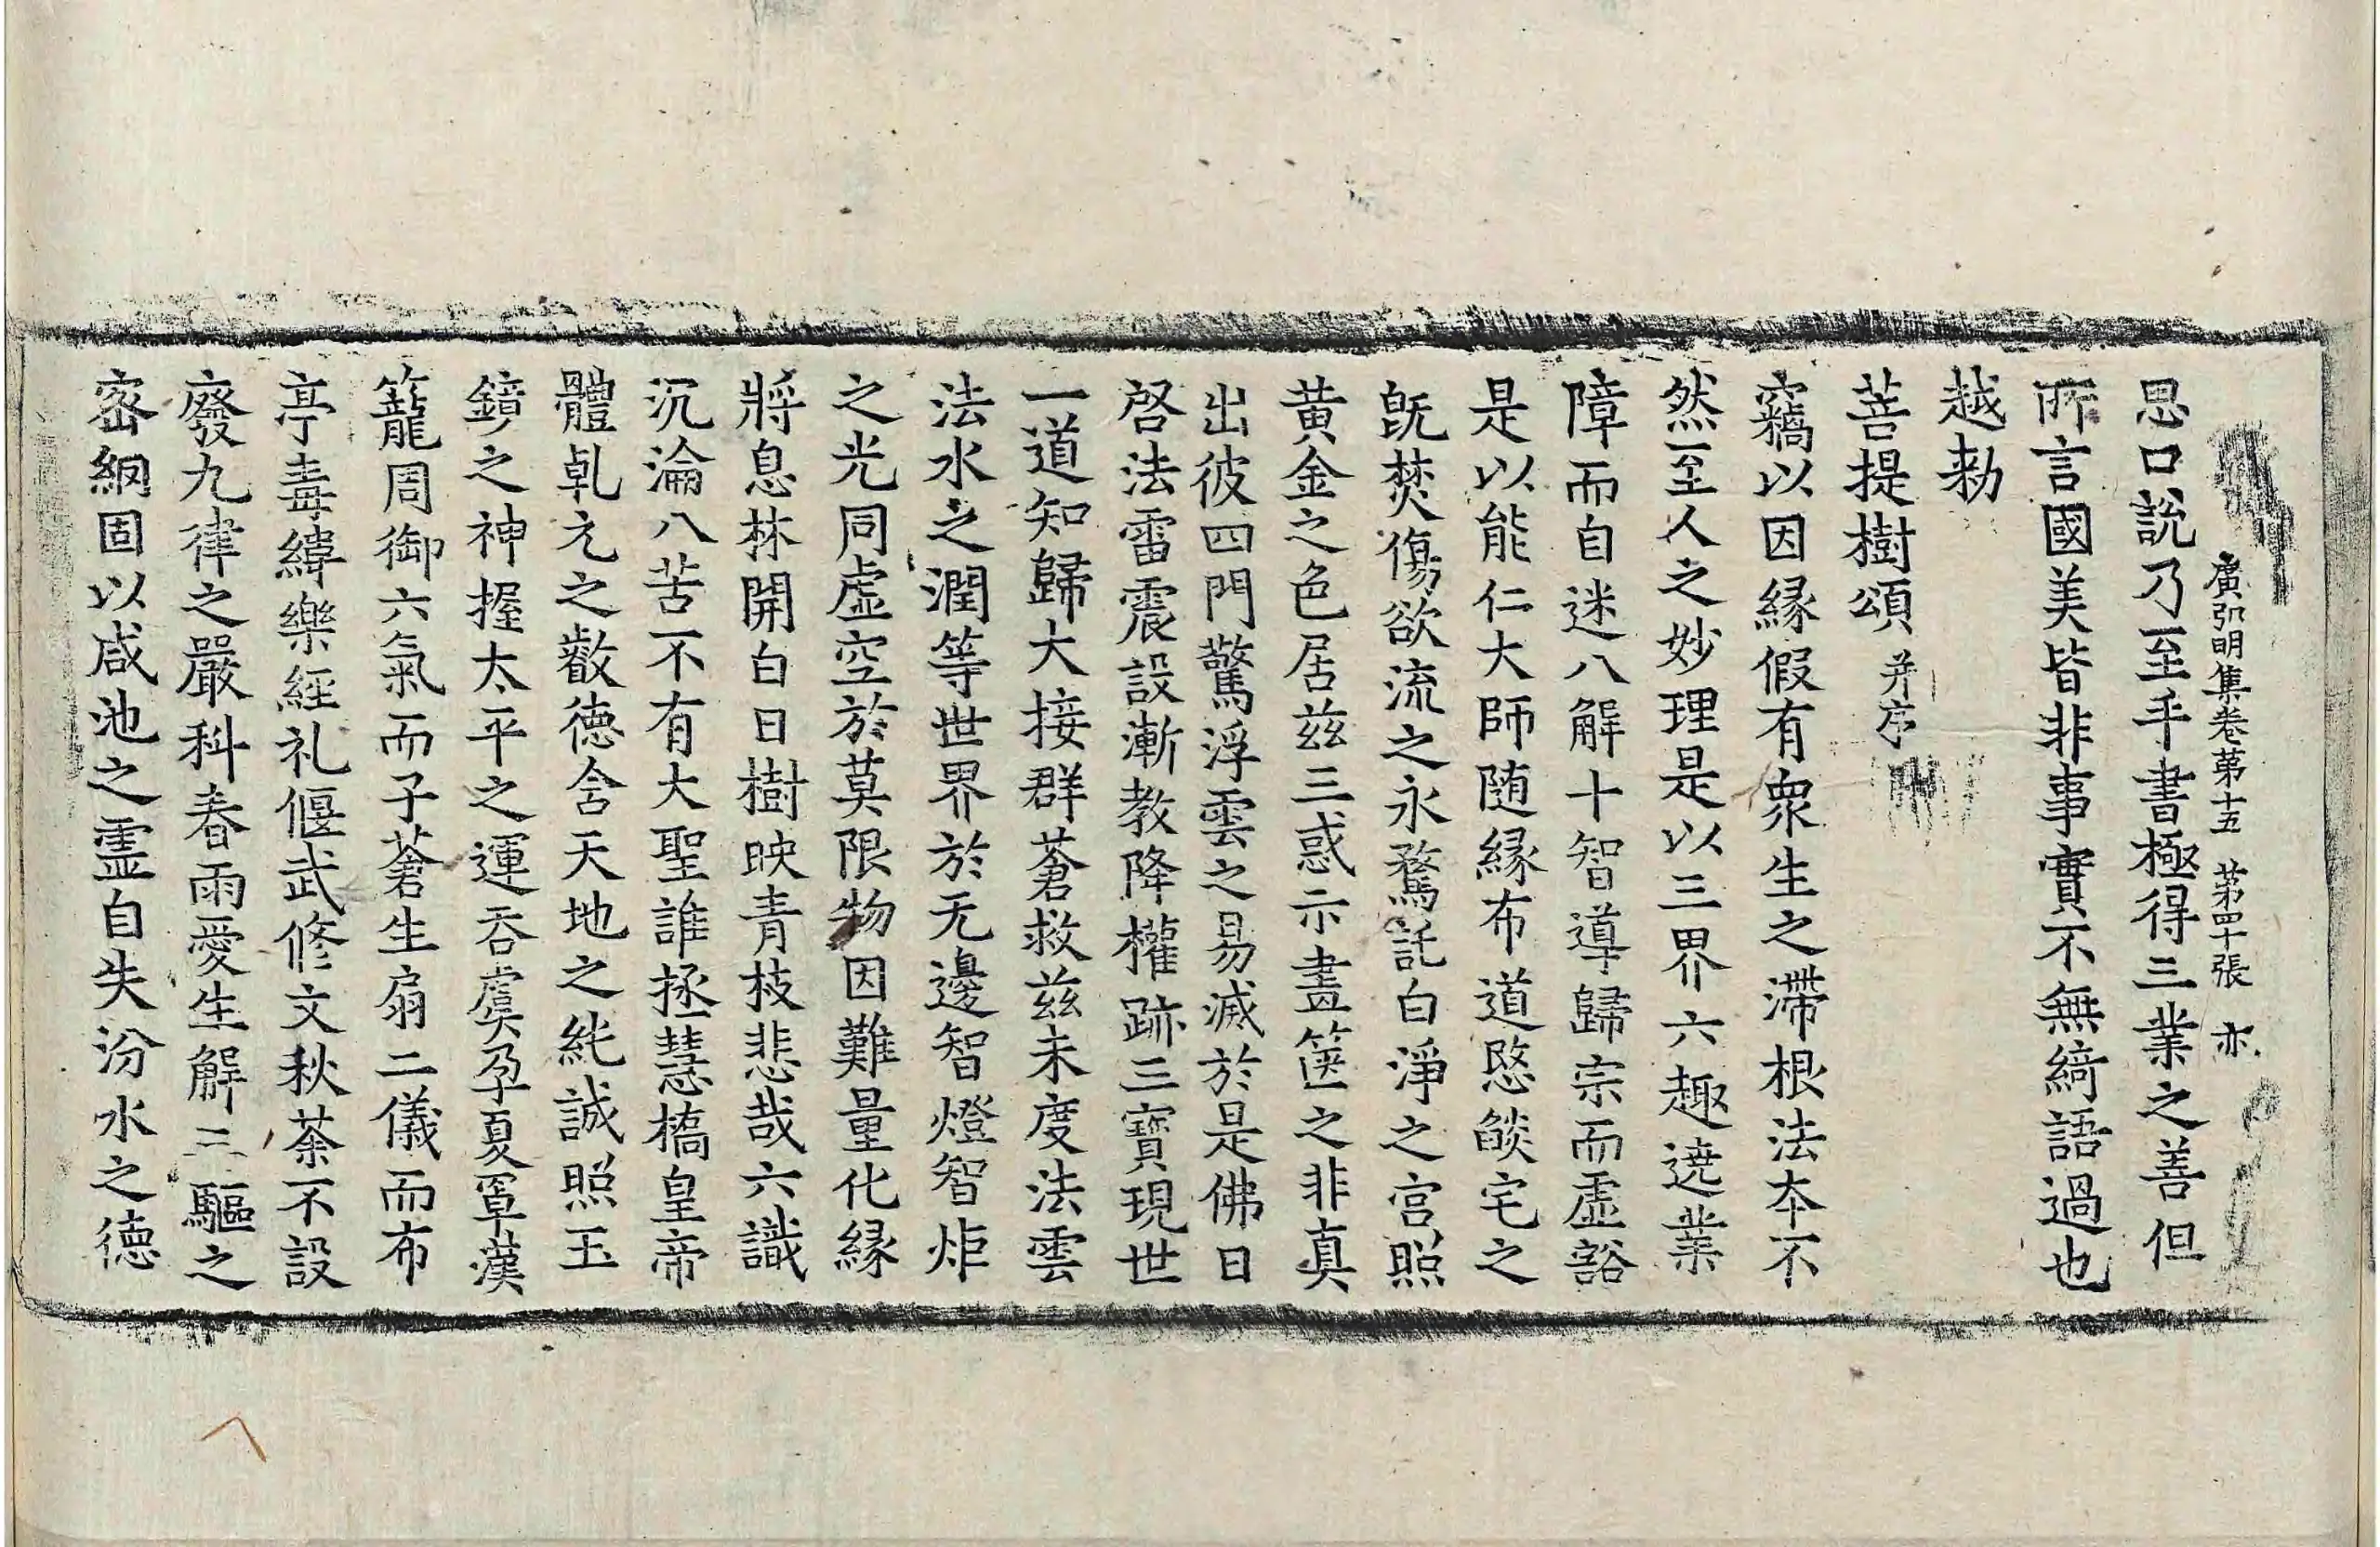 廣弘明集卷第十五 第四十張 亦
思口說乃至手書極得三業之善但
所言國美皆非事實不無綺語過也
越勑
菩提樹頌 并序
竊以因緣假有衆生之滯根法本不
然至人之妙理是以三界六趣遶業
障而自迷八解十智導歸宗而虛豁
是以能仁大師随緣布道愍㷔宅之
旣焚傷欲流之永騖託白淨之宮照
黃金之色居玆三惑示畫篋之非真
出彼四門驚浮雲之易滅於是佛日
啓法雷震設漸教降權跡三寶現世
一道知歸大接群蒼救玆未度法雲
法水之潤等世界於无邊智燈智炬
之光同虛空於莫限物因難量化緣
將息林開白日樹映青枝悲哉六識
沉淪八苦不有大聖誰拯慧橋皇帝
體乹元之叡德含天地之純誠照玉
鏡之神握太平之運吞虞孕夏罩漢
籠周御六氣而子蒼生扇二儀而布
亭毒緯樂經礼偃武修文秋荼不設
廢九律之嚴科春雨愛生解三驅之
密網固以咸池之霊自失汾水之德